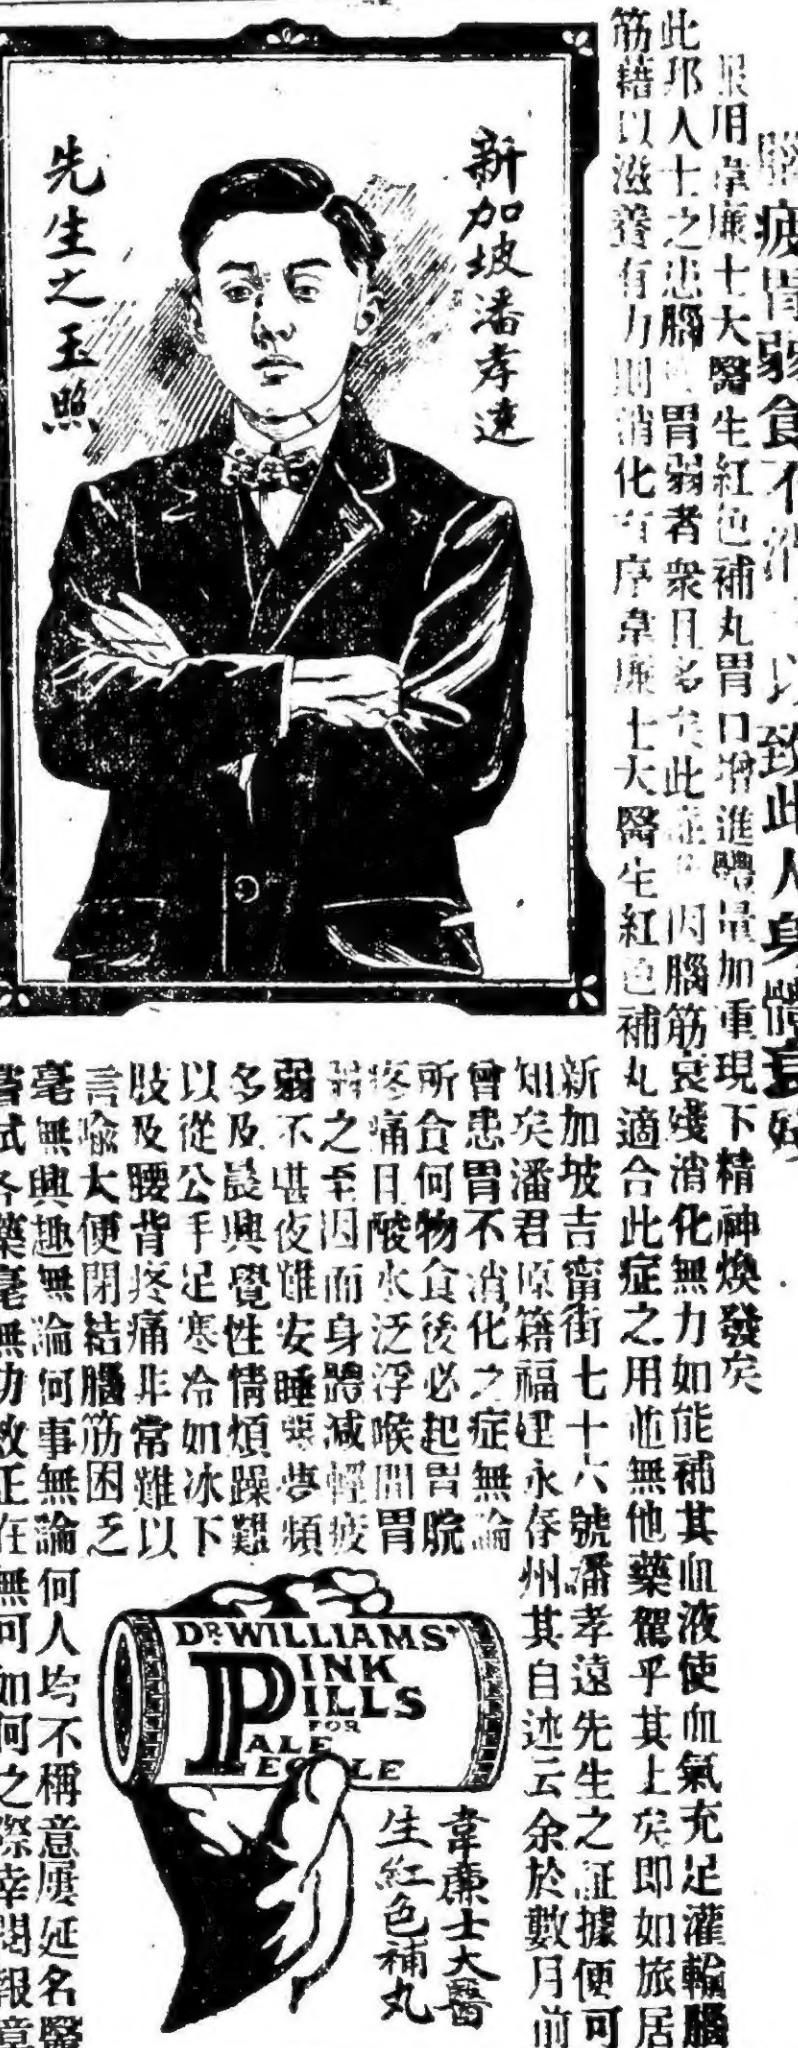 疲胃弱食不消以致此人身體衰
服用韋廉士大醫生紅色補丸胃口增進體量加重現下精神煥發矣
此邦人士之患腦胃弱者衆且多矣此症因腦筋衰殘消化無力如能補其血液使血氣充足灌輸腦
筋藉以滋養有力則消化有序韋廉士大醫生紅色補丸適合此症之用並無他藥駕乎其上矣即如旅居
新加坡吉甯街七十六號潘孝遠先生之証據便可
知矣潘君原籍福建永春州其自述云余於數月前
曾患胃不消化之症無論
所食何物食後必起胃脘
疼痛且酸水泛浮喉間胃
弱之至因而身體減輕疲
弱不堪夜難安睡惡夢頻
多及晨興覺性情煩躁艱
以從公手足寒冷如冰下
肢及腰背疼痛非常難以
言喻大便閉結腦筋困乏
毫無興趣無論何事無論何人均不稱意屢延名醫
嘗試各藥毫無功效正在無可如何之際幸閱報章
新加坡潘孝遠
先生之玉照
DR. WILLIAMS'
PINK
PILLS
FOR
PALE
PEOPLE
韋廉士大醫
生紅色補丸